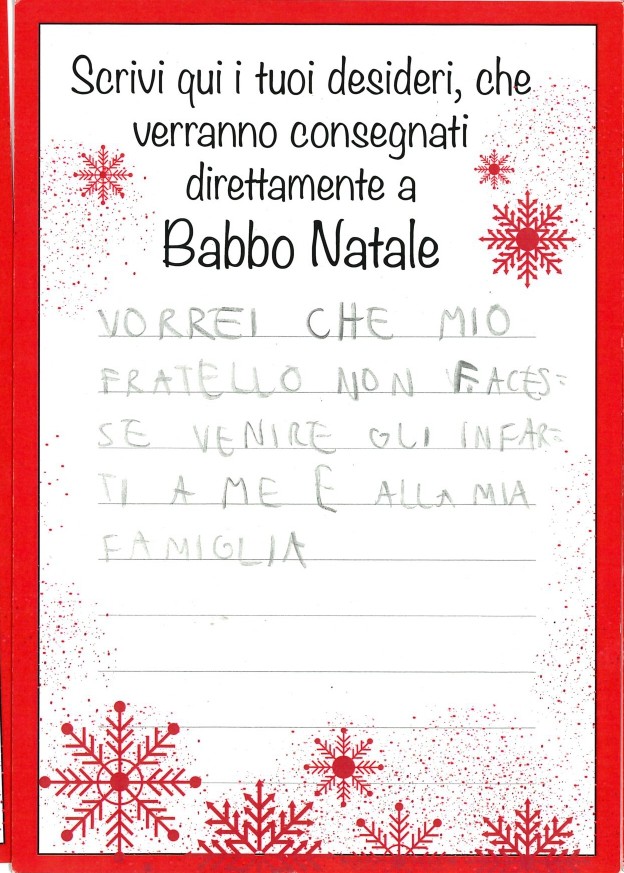 Scrivi qui i tuoi desideri, che
verranno consegnati
direttamente a
Babbo Natale
VORREI CHE MIO
FRATELLO NON FACES=
SE VENIRE GLI INFAR=
TI A ME E ALLA MIA
FAMIGLIA